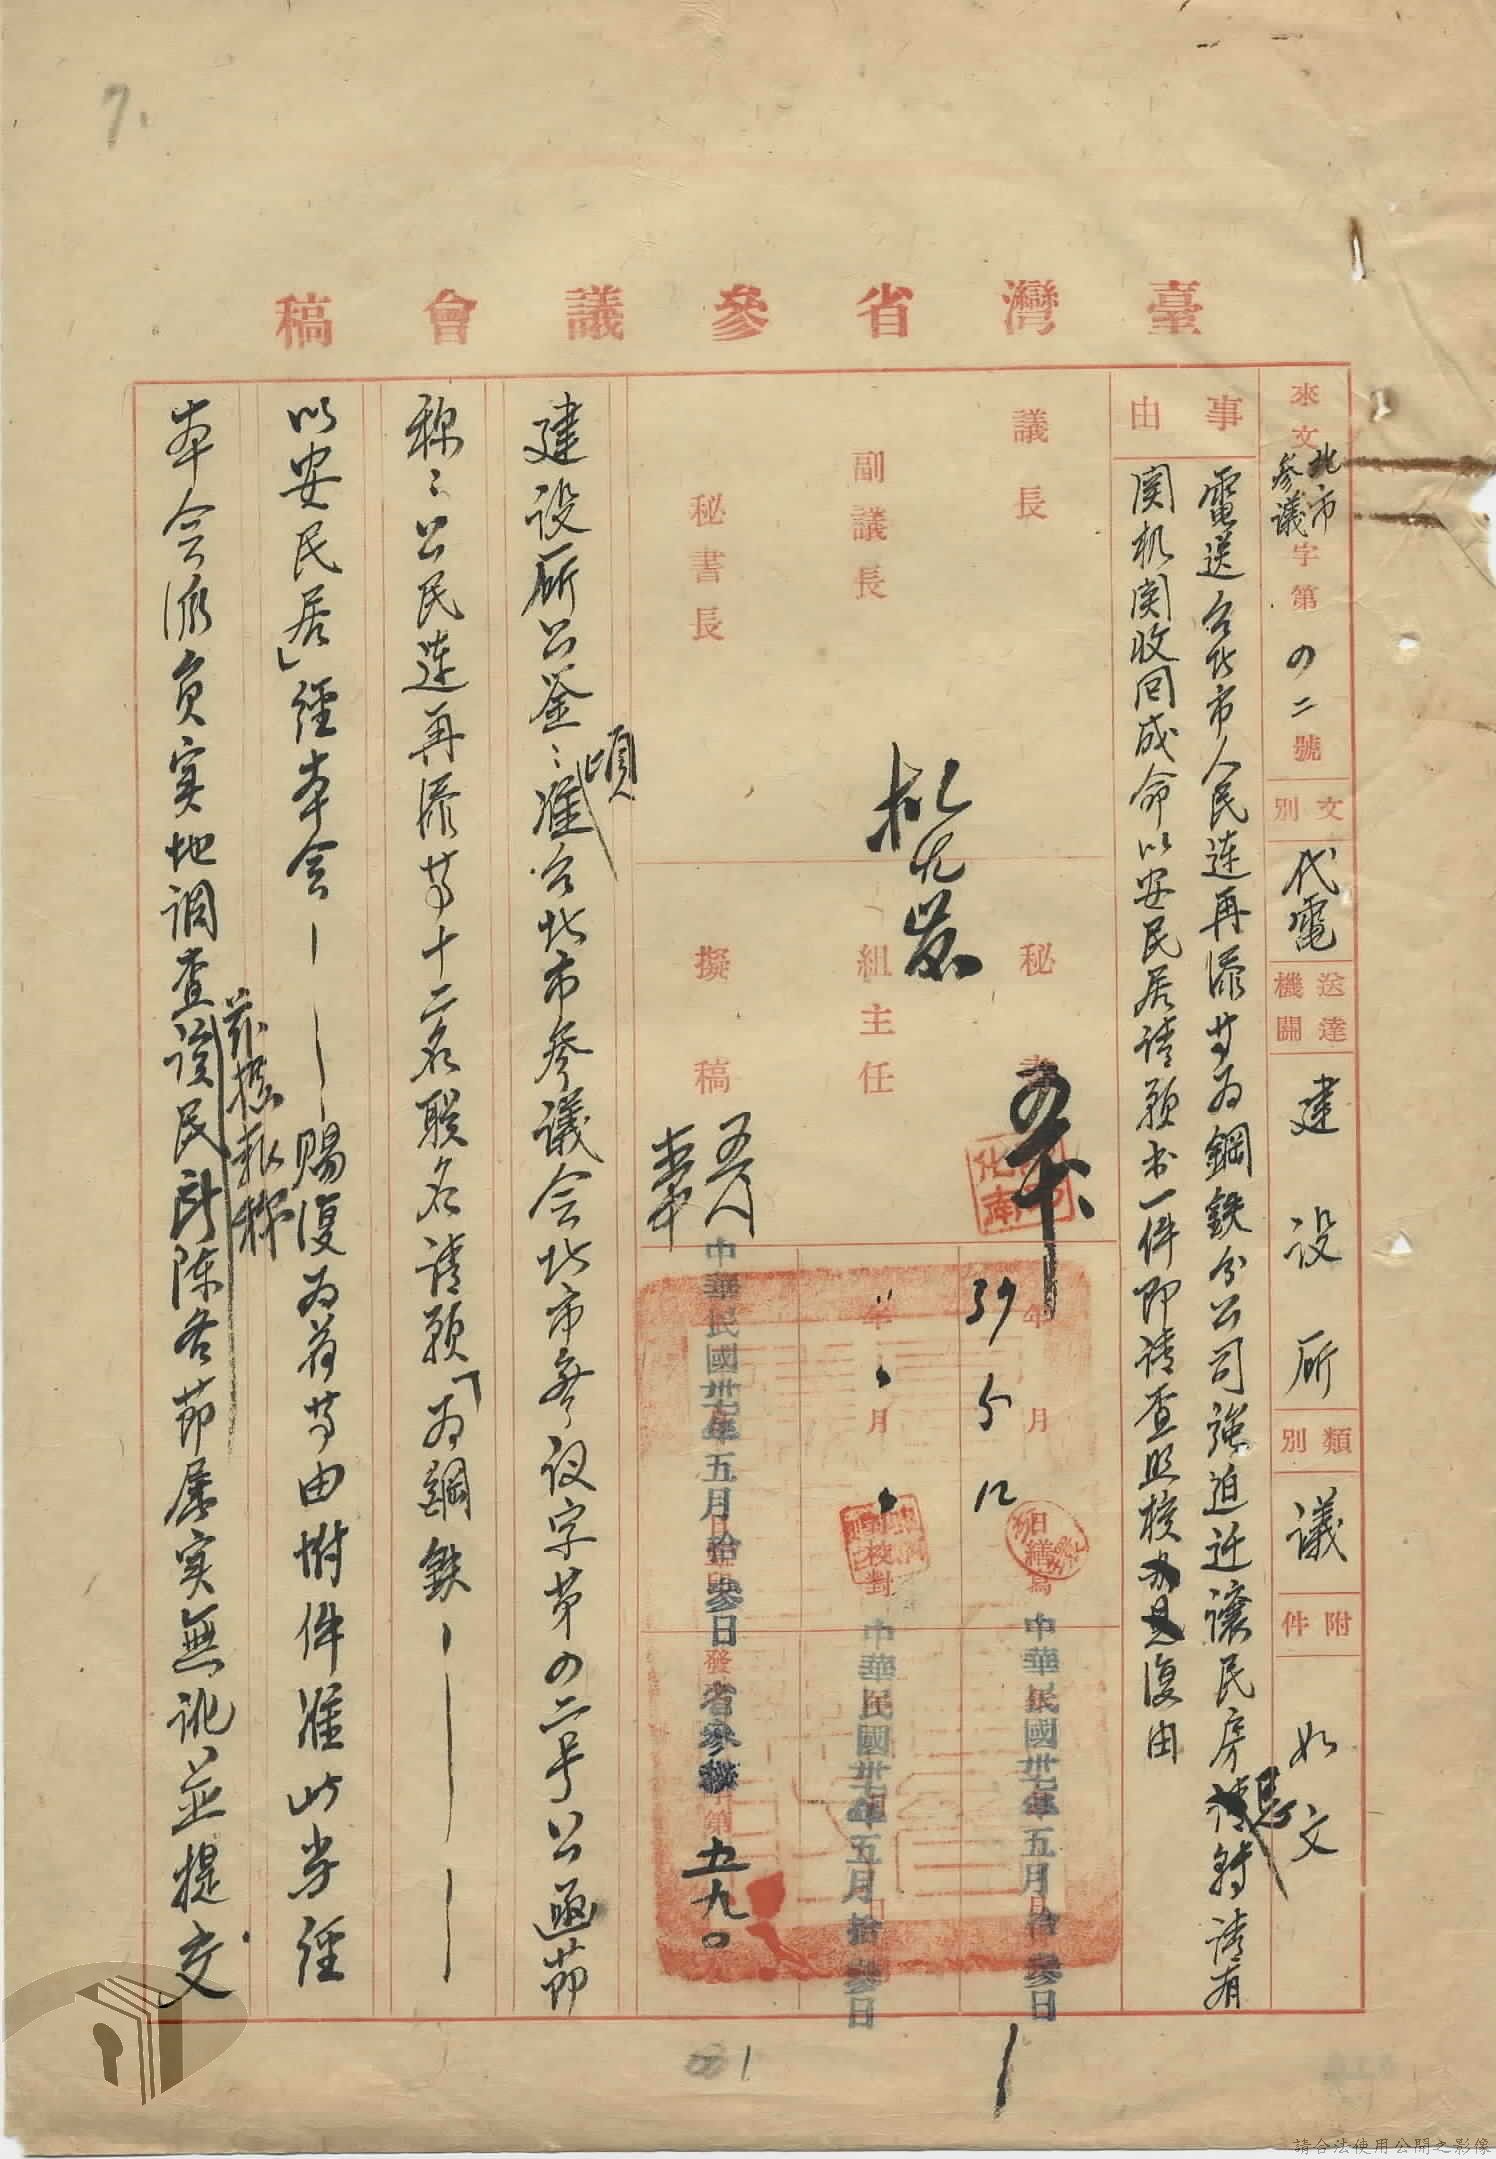 臺灣省參議會稿
來文北市參議字第四二號
文別 代電
送達機關 建設廳
類別 議
附件 如文
事由
電送台北市人民連再添等為鋼鉄分公司強迫迁讓民房懇轉請有
関机関收回成命以安民居請願书一件即請查照核復由
議長
副議長
秘書長
秘書
組主任
擬稿
39年5月12日繕寫
年月日校對
中華民國卅七年五月拾叁日
中華民國卅七年五月拾叁日
中華民國卅七年五月拾叁日
發省參議字第五九〇
建設廳公鉴：頃准台北市参議会北市参议字第四二号公函节
称：公民連再添等十二名联名請願「为鋼鉄———
以安民居」經本会———賜復为荷等由附件准此当經
本会派員实地調查茲據報称該民所陈各节属实無訛並提交
請合法使用公開之影像